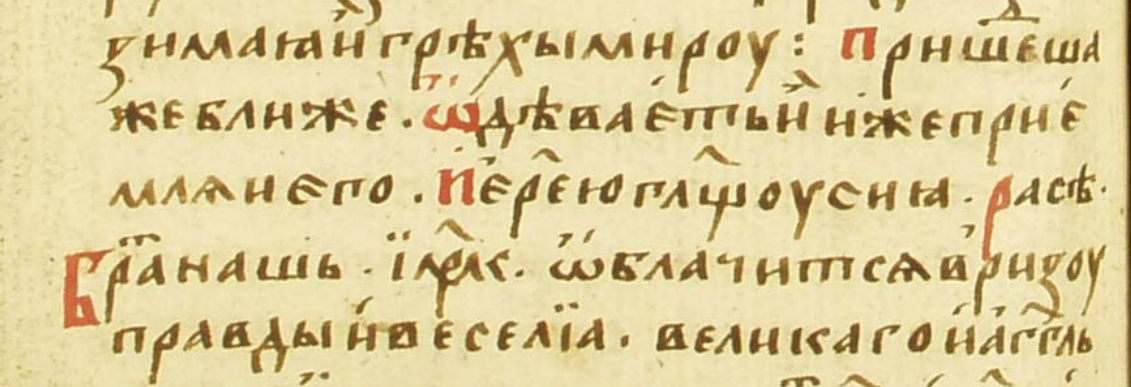 зимаѧи грѣхы мироу : Пришеⷣша
же ближе . ѿдѣваетьи иже прие
млѧи его . Иерею глщоу сиꙗ . расѣ .
Бра нашь . їлⷬк . ѡблачитсѧ в ризоу
правды и веселїа . великаго и агг҃ль